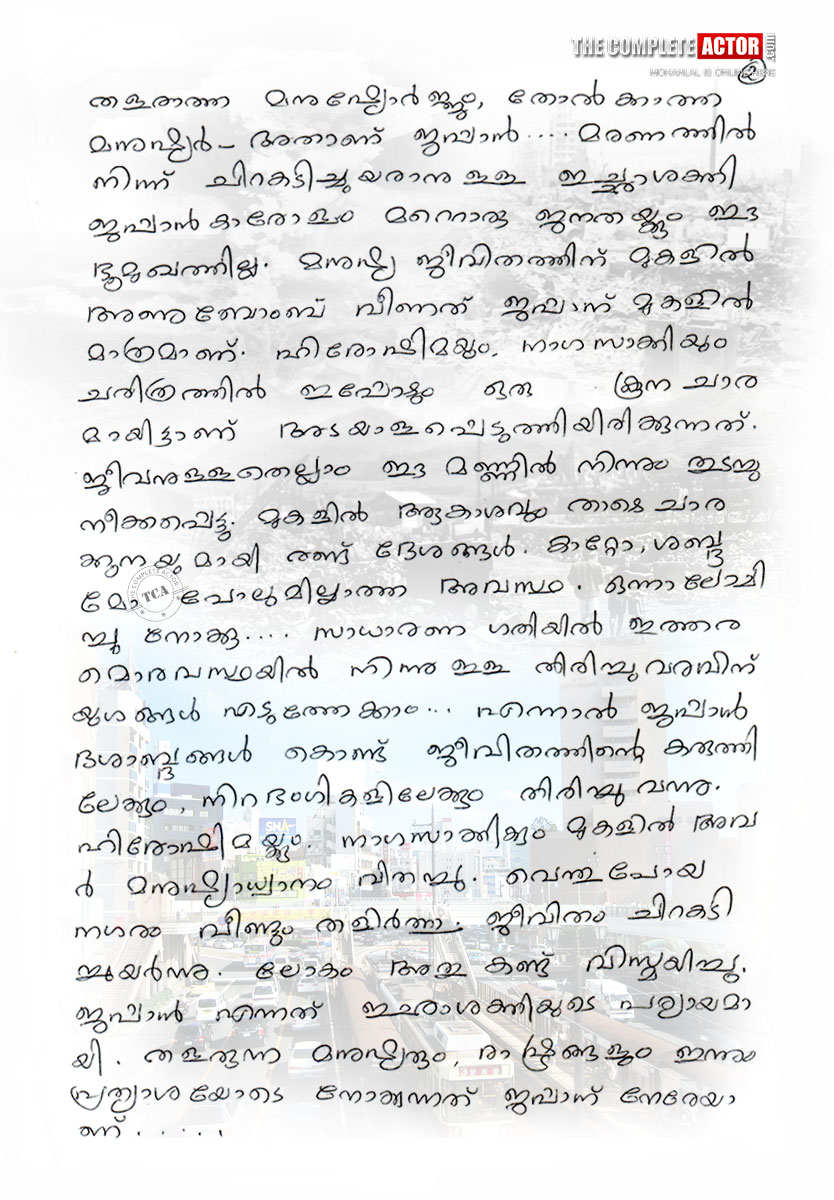 THE COMPLETE ACTOR .com
MOHANLAL IS ONLINE HERE
2
തളരാത്ത മനുഷ്യോർജ്ജം, തോൽക്കാത്ത
മനുഷ്യർ - അതാണ് ജപ്പാൻ.... മരണത്തിൽ
നിന്ന് ചിറകടിച്ചുയരാനുള്ള ഇച്ഛാശക്തി
ജപ്പാൻകാരോളം മറ്റൊരു ജനതയ്ക്കും ഈ
ഭൂമുഖത്തില്ല. മനുഷ്യ ജീവിതത്തിന് മുകളിൽ
അണുബോംബ് വീണത് ജപ്പാന് മുകളിൽ
മാത്രമാണ്. ഹിരോഷിമയും, നാഗസാക്കിയും
ചരിത്രത്തിൽ ഇപ്പോഴും ഒരു കൂന ചാര
മായിട്ടാണ് അടയാളപ്പെടുത്തിയിരിക്കുന്നത്.
ജീവനുള്ളതെല്ലാം ഈ മണ്ണിൽ നിന്നും തുടച്ചു
നീക്കപ്പെട്ടു. മുകളിൽ ആകാശവും താഴെ ചാര
ക്കൂനയുമായി രണ്ട് ദേശങ്ങൾ. കാറ്റോ, ശബ്ദ
മോ പോലുമില്ലാത്ത അവസ്ഥ. ഒന്നാലോചി
ച്ചു നോക്കൂ.... സാധാരണ ഗതിയിൽ ഇത്തര
മൊരവസ്ഥയിൽ നിന്നുള്ള തിരിച്ചുവരവിന്
യുഗങ്ങൾ എടുത്തേക്കാം... എന്നാൽ ജപ്പാൻ
ദശാബ്ദങ്ങൾ കൊണ്ട് ജീവിതത്തിന്റെ കരുത്തി
ലേക്കും, നിറഭംഗികളിലേക്കും തിരിച്ചു വന്നു.
ഹിരോഷിമയ്ക്കും. നാഗസാക്കിക്കും മുകളിൽ അവ
ർ മനുഷ്യാധ്വാനം വിതച്ചു. വെന്തുപോയ
നഗരം വീണ്ടും തളിർത്തു. ജീവിതം ചിറകടി
ച്ചുയർന്നു. ലോകം അത് കണ്ട് വിസ്മയിച്ചു.
ജപ്പാൻ എന്നത് ഇച്ഛാശക്തിയുടെ പര്യായമാ
യി. തളരുന്ന മനുഷ്യരും, രാഷ്ട്രങ്ങളും ഇന്നും
പ്രത്യാശയോടെ നോക്കുന്നത് ജപ്പാന് നേരേയാ
ണ്......
THE COMPLETE ACTOR
TCA